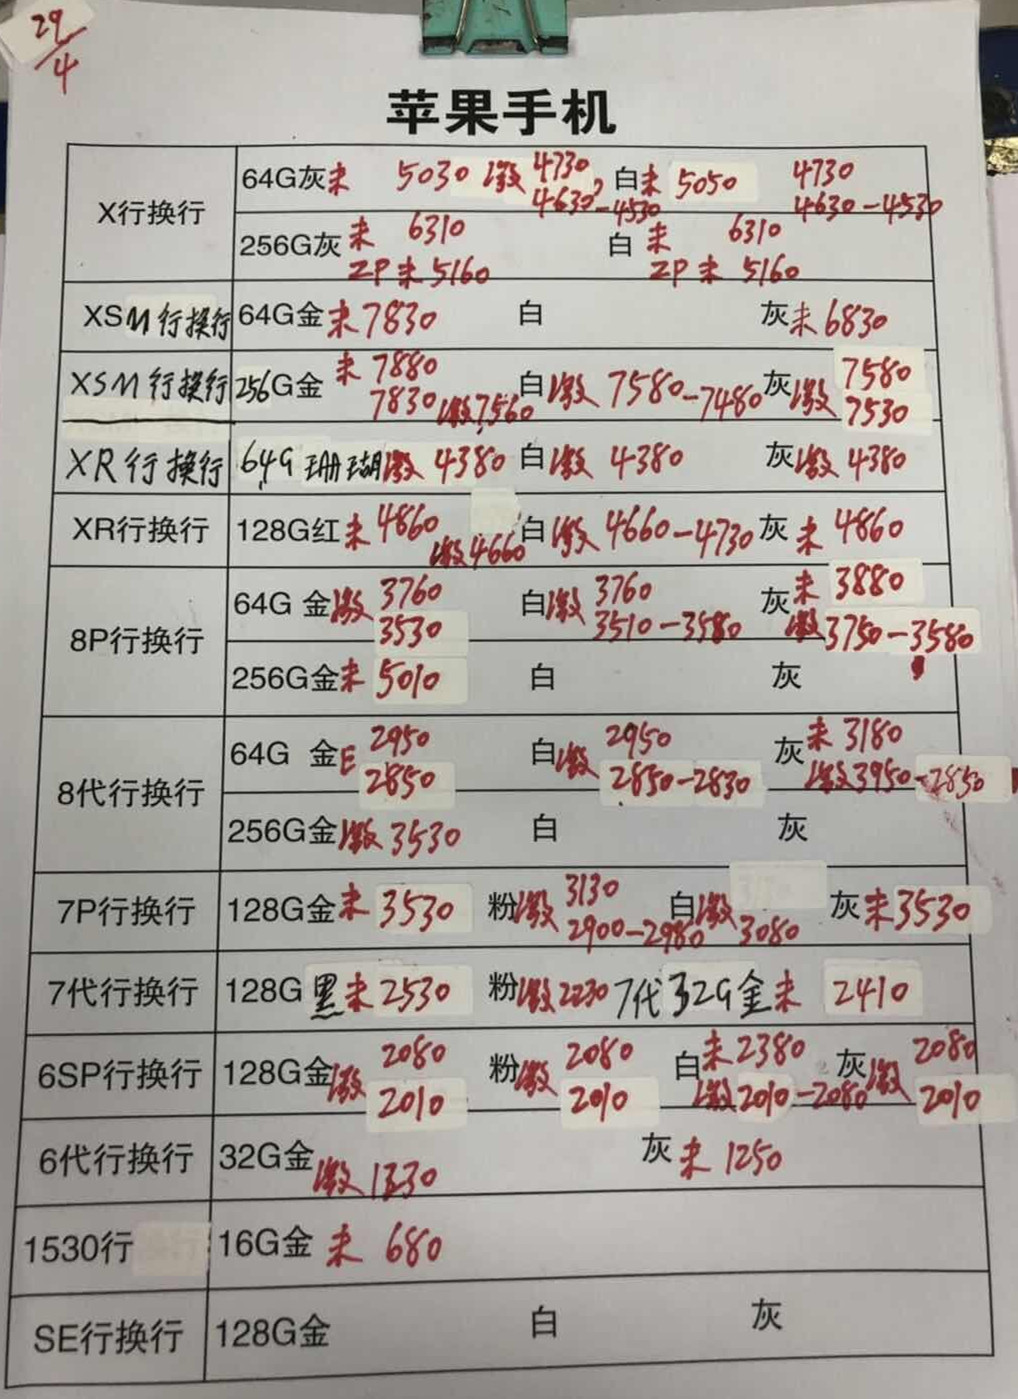 29/4
苹果手机
X行换行 64G灰未 5030 激 4730 白未 5050 4730
4630-4530 4630-4530
256G灰未 6310 白未 6310
ZP未5160 ZP未5160
XSM行换行 64G金未7830 白 灰未6830
XSM行换行 256G金 未7880 白激 7580-7480 灰激 7580
7830 激7560 7530
XR行换行 64G 珊瑚激 4380 白激 4380 灰激 4380
XR行换行 128G红未 4860 白激 4660-4730 灰未 4860
激4660
8P行换行 64G 金激 3760 白激 3760 灰未 3880
3530 3510-3580 激3750-3580
256G金未 5010 白 灰
8代行换行 64G 金E 2950 白激 2950 灰未 3180
2850 2850-2830 激3950-2850
256G金激 3530 白 灰
7P行换行 128G金未 3530 粉激 3130 白激 灰未3530
2900-2980 3080
7代行换行 128G 黑未2530 粉激2230 7代32G金未 2410
6SP行换行 128G金激 2080 粉激 2080 白未2380 灰激 2080
2010 2010 激2010-2080 2010
6代行换行 32G金激 1330 灰未 1250
1530行 16G金 未 680
SE行换行 128G金 白 灰